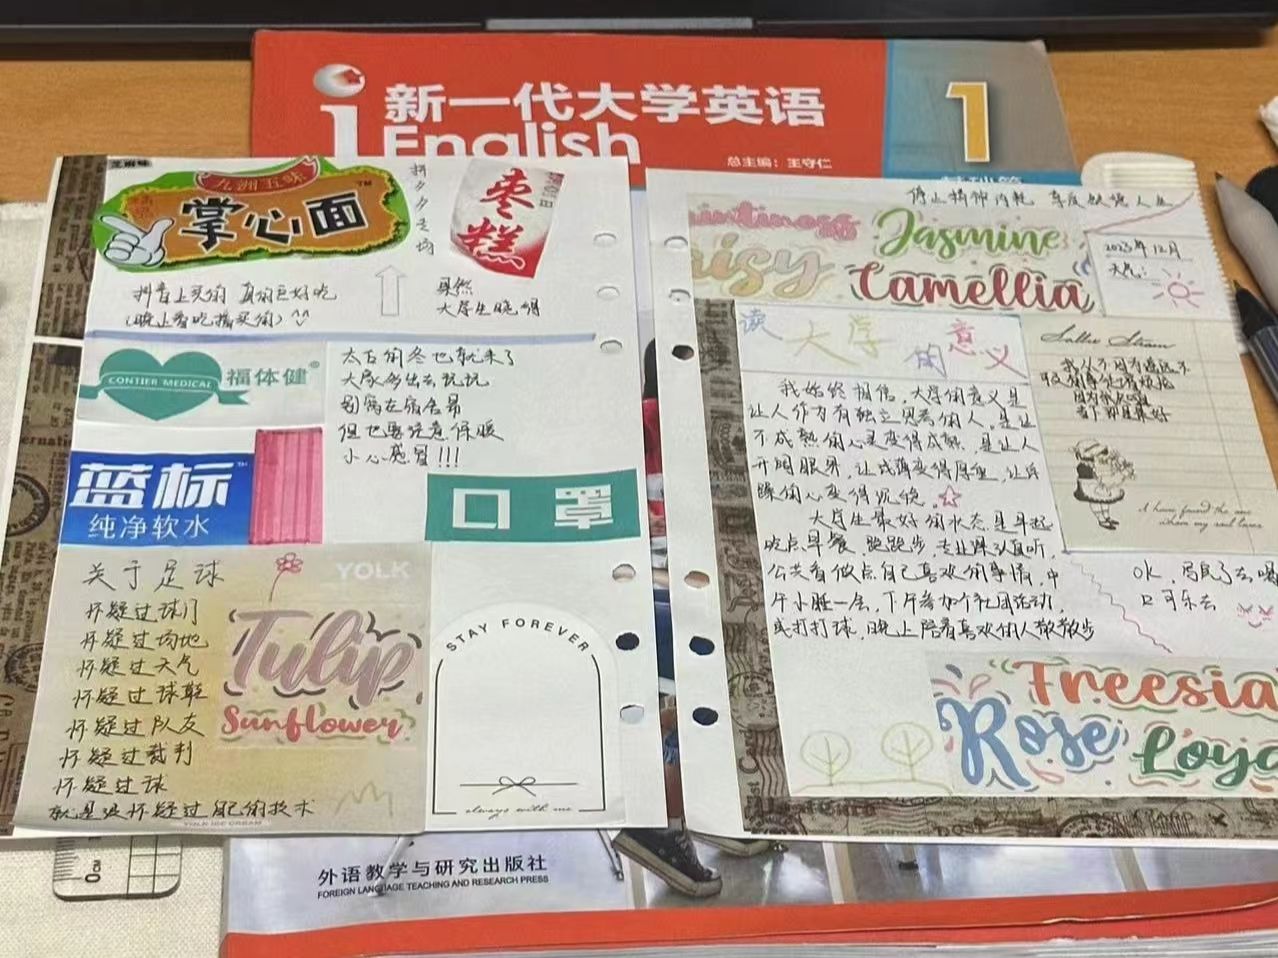 新一代大学英语
i English
1
总主编：王守仁
芝麻味
九洲五味
掌心面
TM
拼夕夕之均
枣糕
抖音上买的 真的巨好吃
(晚上看吃播买的)
果然
大学生晚明
CONTIER MEDICAL
福体健®
太古的冬也就来了
大家多出去玩玩
别窝在宿舍昂
但也要注意保暖
小心感冒!!!
蓝标™
纯净软水
口罩
关于足球
怀疑过球门
怀疑过场地
怀疑过天气
怀疑过球鞋
怀疑过队友
怀疑过裁判
怀疑过球
就是没怀疑过自己的技术
YOLK
Tulip
Sunflower
STAY FOREVER
always with me
停止精神内耗
Jasmine
aisy
Camellia
2023年12月
天气:
读大学的意义
我始终相信,大学的意义是
让人作为有独立思考的人,是让
不成熟的心灵变得成熟,是让人
开阔眼界,让浅薄变得厚重,让浮
躁的心变得沉稳。
大学生最好的状态是早起
吃点早餐,跑跑步,专业课认真听,
公共看做点自己喜欢的事情,中
午小睡一会,下午参加个社团活动,
或打打球,晚上陪着喜欢的人散散步
I have found the one
whom my soul loves
OK,写完了去喝
口可乐去
Freesia
Rose
Loya
外语教学与研究出版社
FOREIGN LANGUAGE TEACHING AND RESEARCH PRESS
0cm